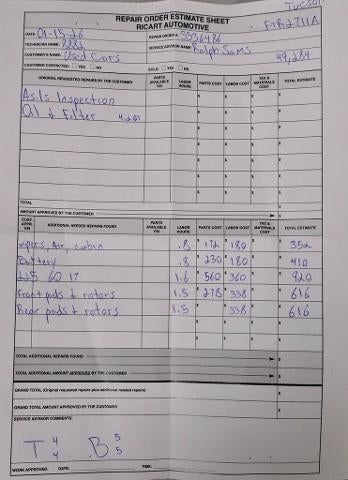 Tucson
REPAIR ORDER ESTIMATE SHEET
RICART AUTOMOTIVE
DATE: 01-15-26 REPAIR ORDER #: 3536486
TECHNICIAN NAME: SERVICE ADVISOR NAME: Ralph Sams
CUSTOMER'S NAME: Used Cars 49,284
CUSTOMER CONTACTED: YES NO SOLD: YES NO
ORIGINAL REQUESTED REPAIRS BY THE CUSTOMER PARTS AVAILABLE Y/N LABOR HOURS PARTS COST LABOR COST TAX & MATERIALS COST TOTAL ESTIMATE
As Is Inspection
Oil & Filter
TOTAL
AMOUNT APPROVED BY THE CUSTOMER
CUST. APPR. Y/N ADDITIONAL NEEDED REPAIRS FOUND PARTS AVAILABLE Y/N LABOR HOURS PARTS COST LABOR COST TAX & MATERIALS COST TOTAL ESTIMATE
wipers, Air, cabin .8 172 180 352
Battery .8 230 180 410
60 17 1.6 560 360 920
Front pads & rotors 1.5 278 338 616
Rear pads & rotors 1.5 338 616
TOTAL ADDITIONAL REPAIRS FOUND
TOTAL ADDITIONAL AMOUNT APPROVED BY THE CUSTOMER
GRAND TOTAL (Original requested repairs plus additional needed repairs)
GRAND TOTAL AMOUNT APPROVED BY THE CUSTOMER
SERVICE ADVISOR COMMENTS:
T 4 4 B 5 5
WORK APPROVED: DATE: TIME: